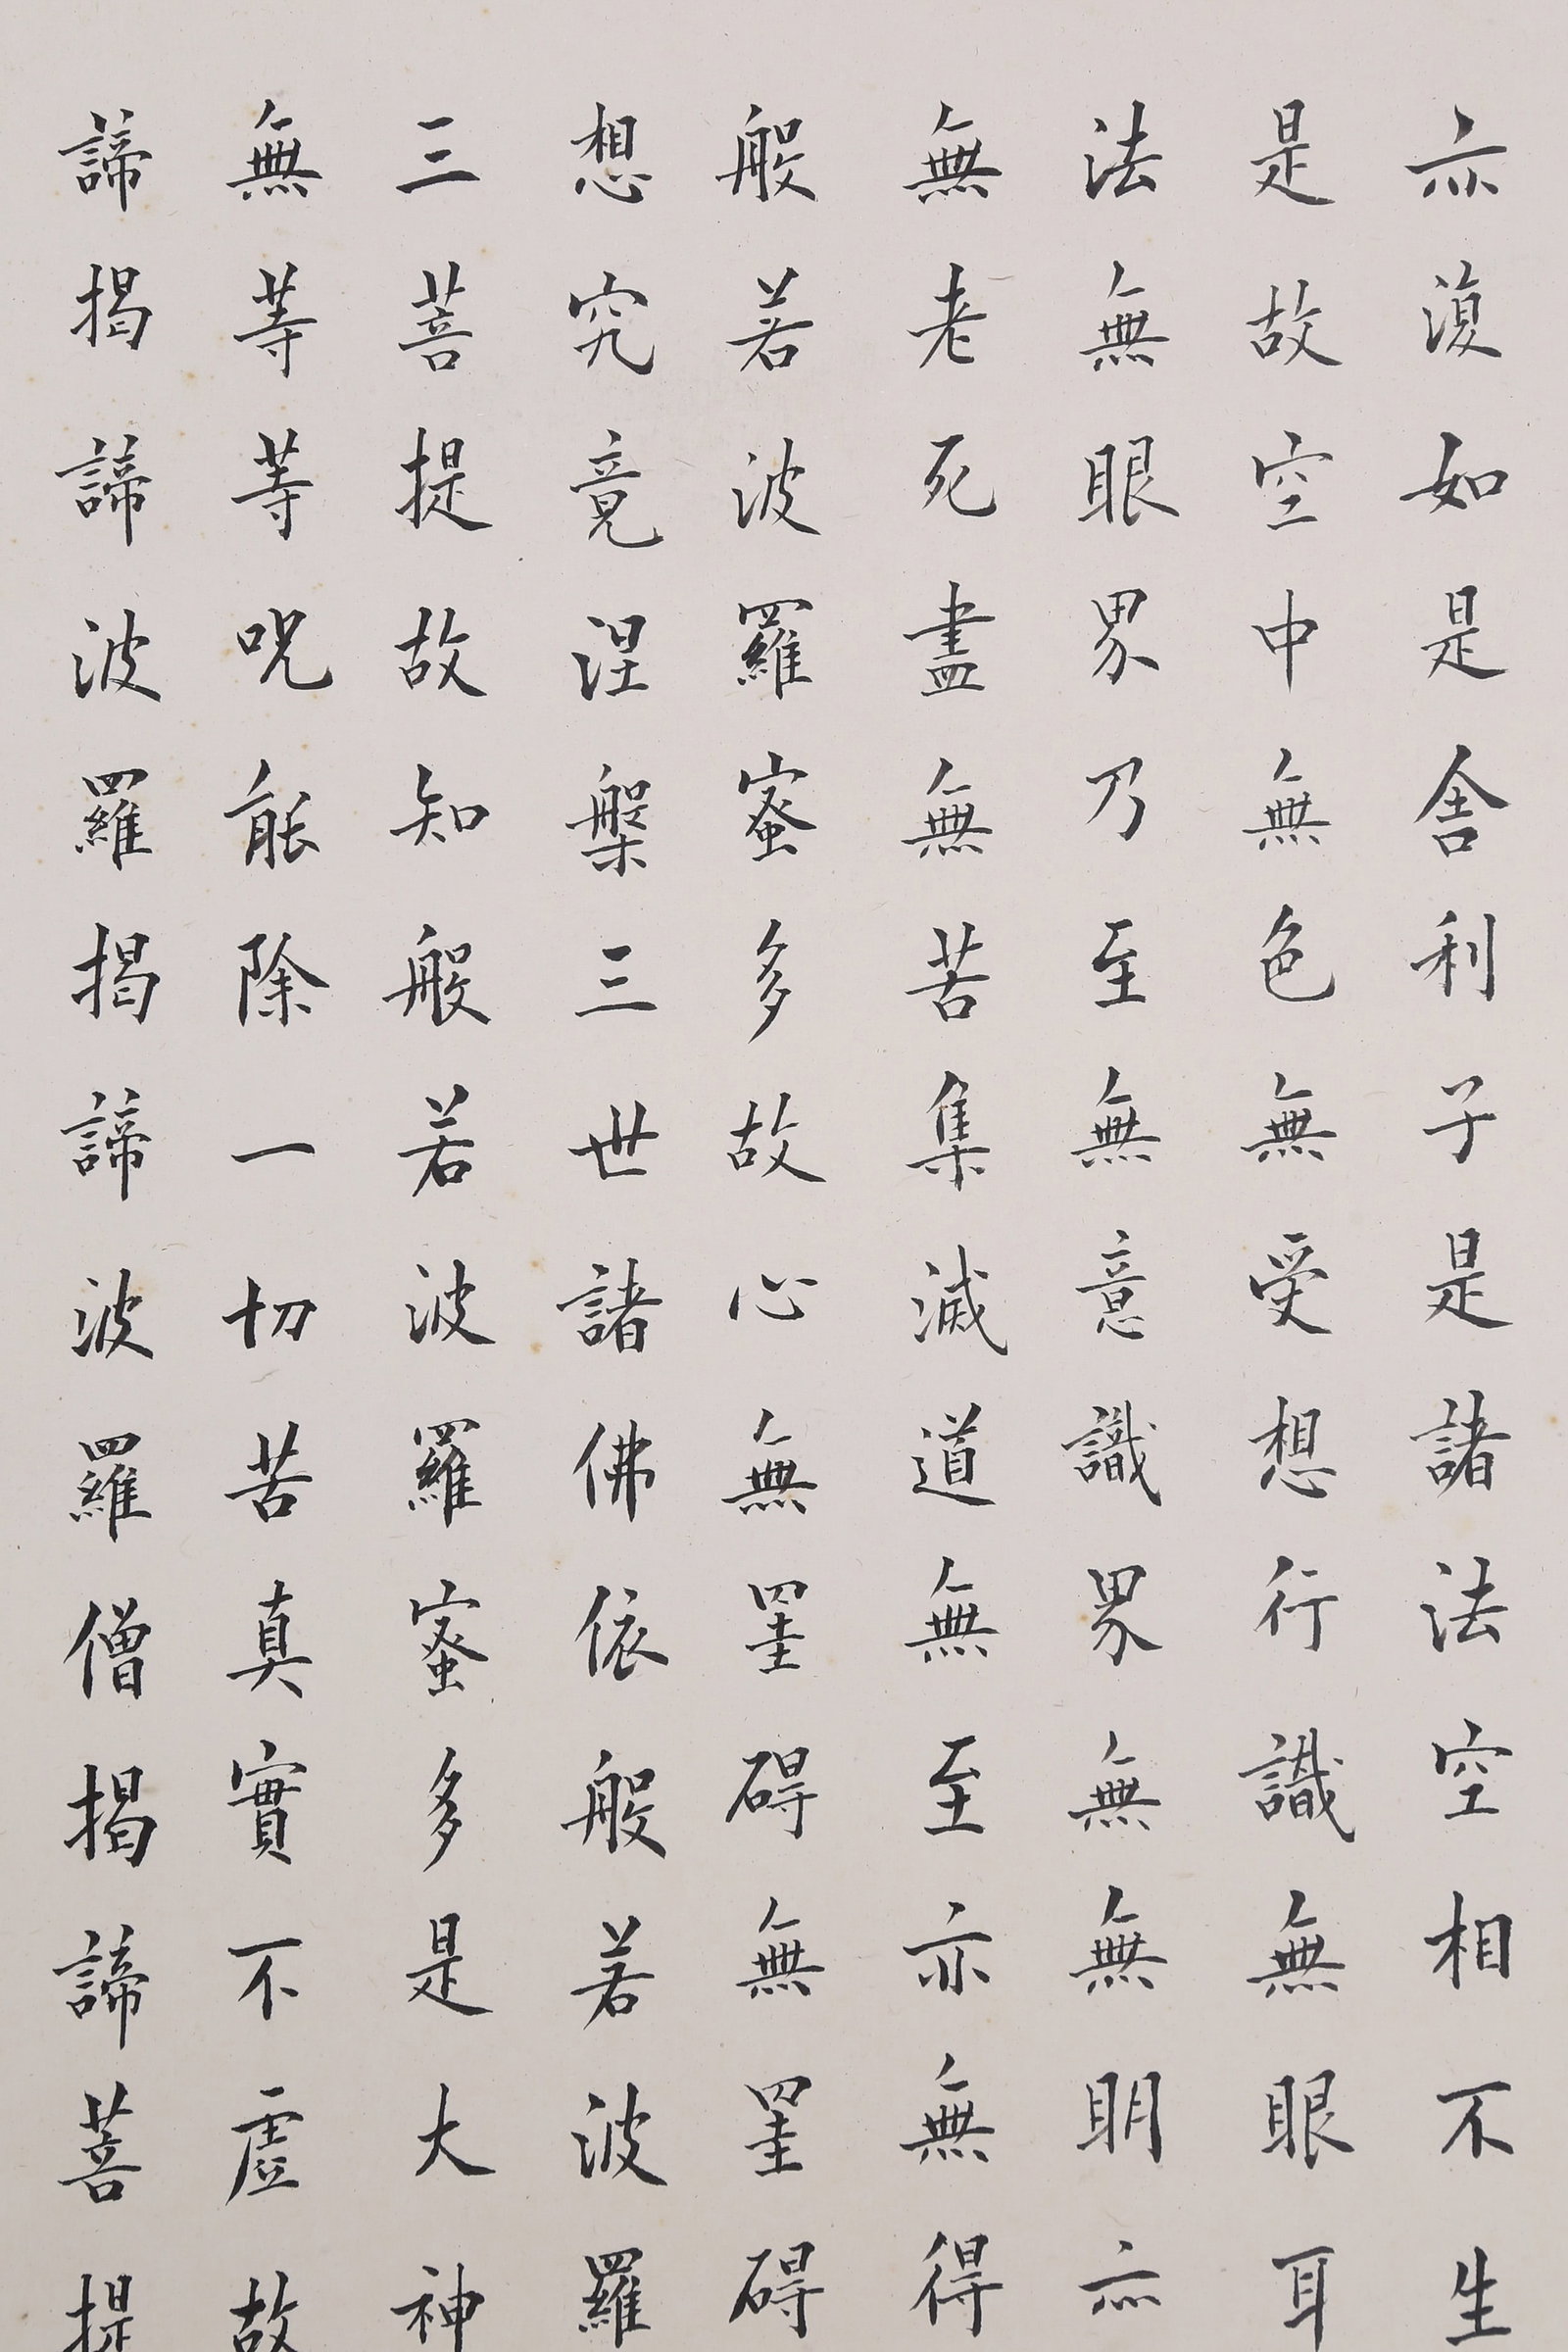 亦復如是舍利子是諸法空相不生
是故空中無色無受想行識無眼耳
法無眼界乃至無意識界無無明亦
無老死盡無苦集滅道無至亦無得
般若波羅蜜多故心無罣碍無罣碍
想究竟涅槃三世諸佛依般若波羅
三菩提故知般若波羅蜜多是大神
無等等呪能除一切苦真實不虛故
諦揭諦波羅揭諦波羅僧揭諦菩提